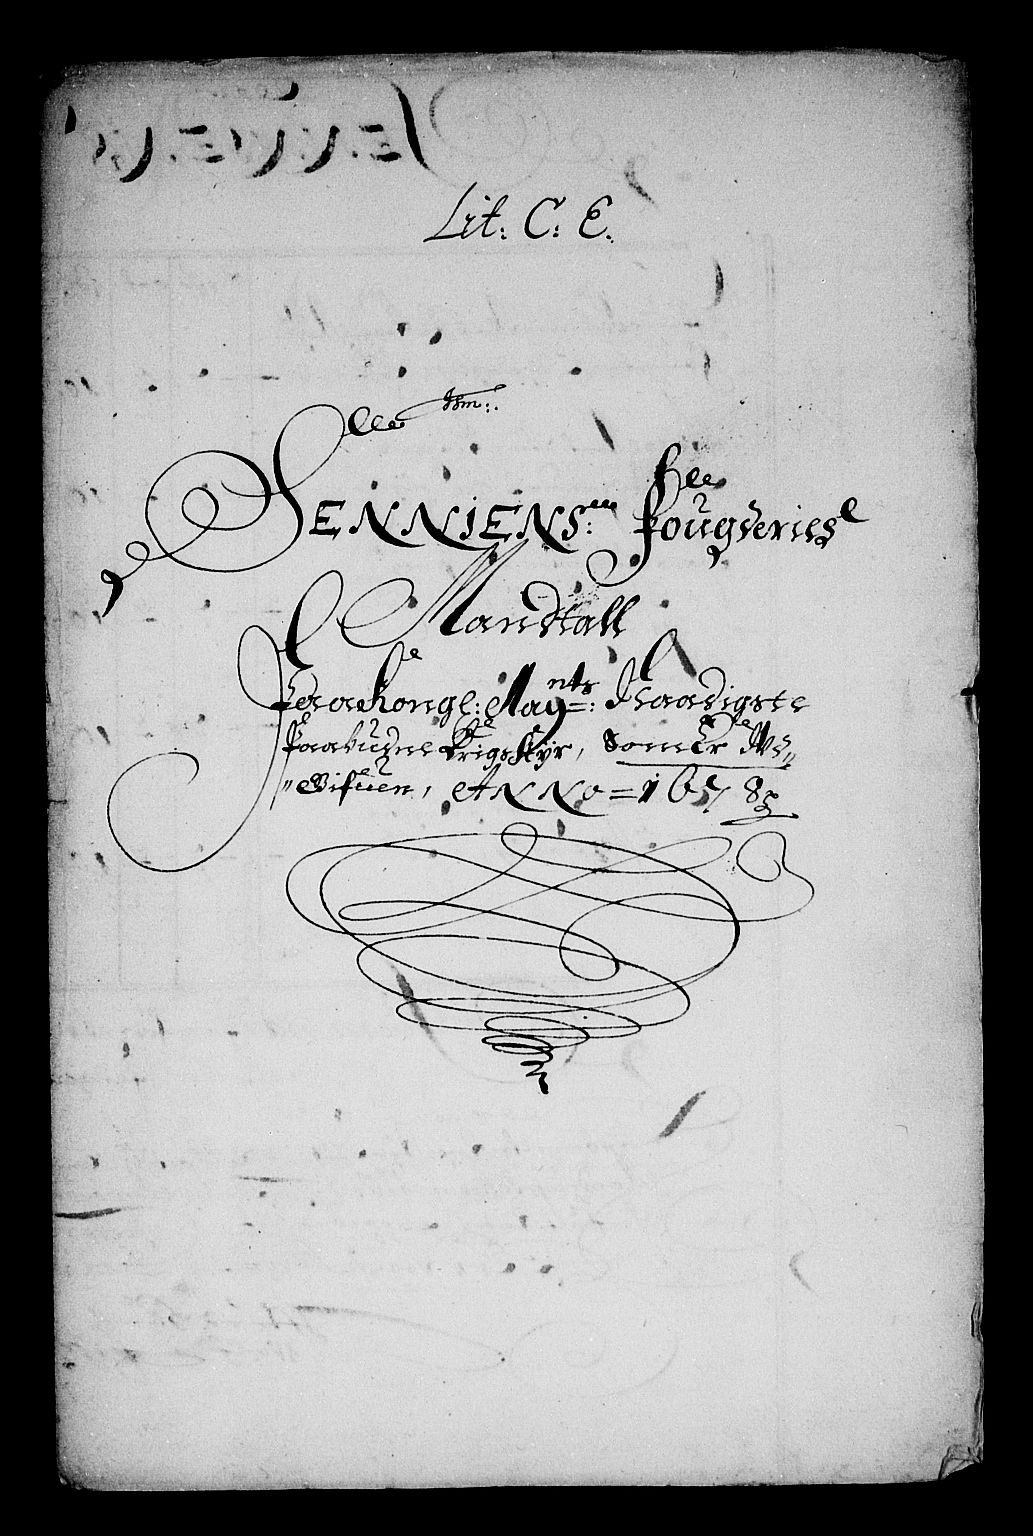 Lit: C: E.
SENNIENS: Fougderies
Mandtall
Paa Kongl: Mayts: Naadigste
Paabudne Krigs Styr, Som Er Be„
„Vifuen, ANNO = 1678